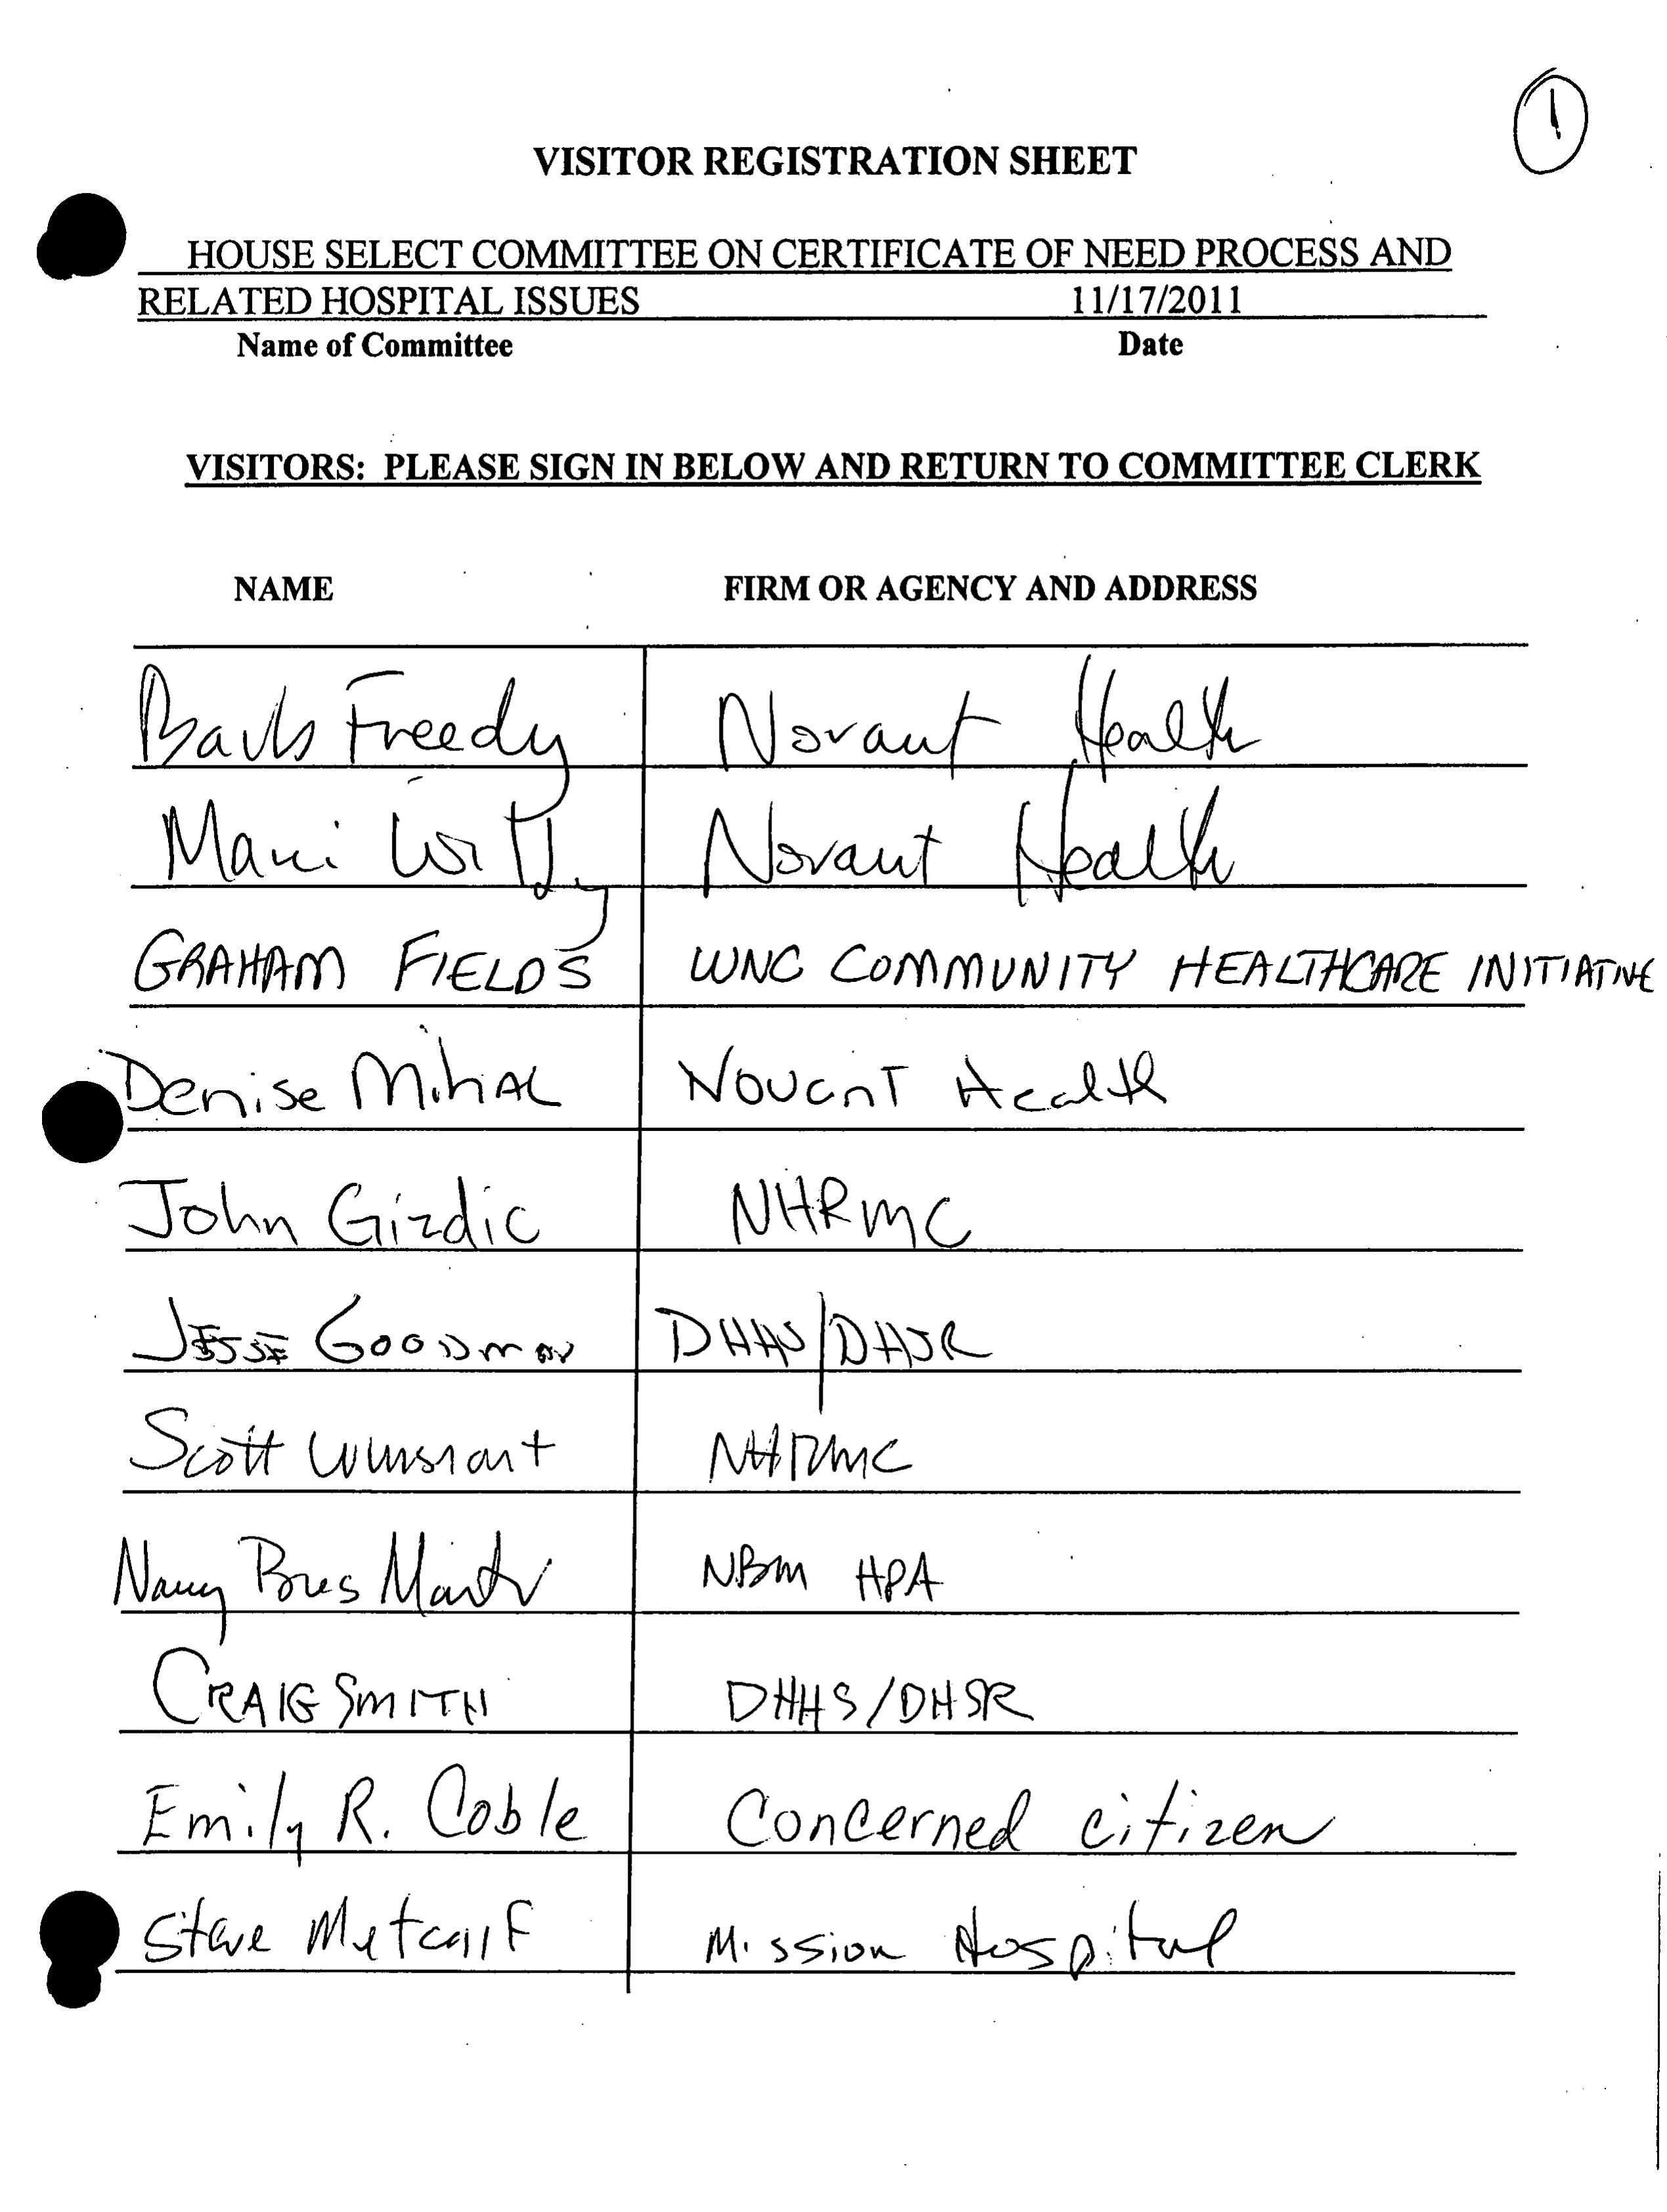 1
VISITOR REGISTRATION SHEET
HOUSE SELECT COMMITTEE ON CERTIFICATE OF NEED PROCESS AND
RELATED HOSPITAL ISSUES 11/17/2011
Name of Committee Date
VISITORS: PLEASE SIGN IN BELOW AND RETURN TO COMMITTEE CLERK
NAME FIRM OR AGENCY AND ADDRESS
Barb Freedy Novant Health
Novant Health
GRAHAM FIELDS WNC COMMUNITY HEALTHCARE INITIATIVE
Denise MihAL Novant Health
John Gizdic NHRMC
JESSE GOODMAN DHHS/DHSR
Scott Whisnant NHRMC
Nancy Bres Martin NBM HPA
CRAIG SMITH DHHS/DHSR
Emily R. Coble Concerned citizen
Steve Metcalf Mission Hospital